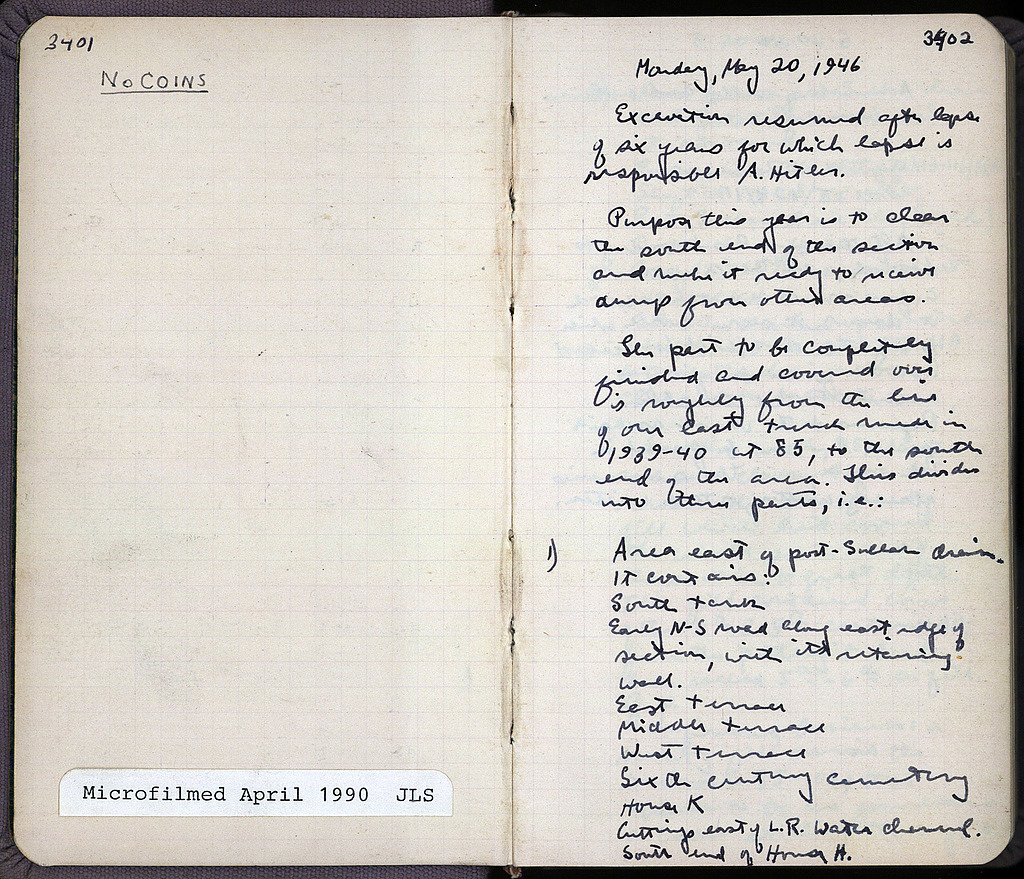 3401
No COINS
Microfilmed April 1990 JLS
3402
Monday, May 20, 1946
Excavation resumed after lapse
of six years for which lapse is
responsible A. Hitler.
Purpose this year is to clear
the south end of the section
and make it ready to receive
dump from other areas.
The part to be completely
finished and covered over
is roughly from the line
of our east trench made in
1939-40 at 85, to the south
end of the area. This divides
into three parts, i.e.:
1) Area east of post-Sullan drain.
It contains:
South tank
Early N-S road along east edge of
section, with its retaining
wall.
East terrace
Middle terrace
West terrace
Sixth century cemetery
House K
Cuttings east of L.R. Water channel.
South end of House H.